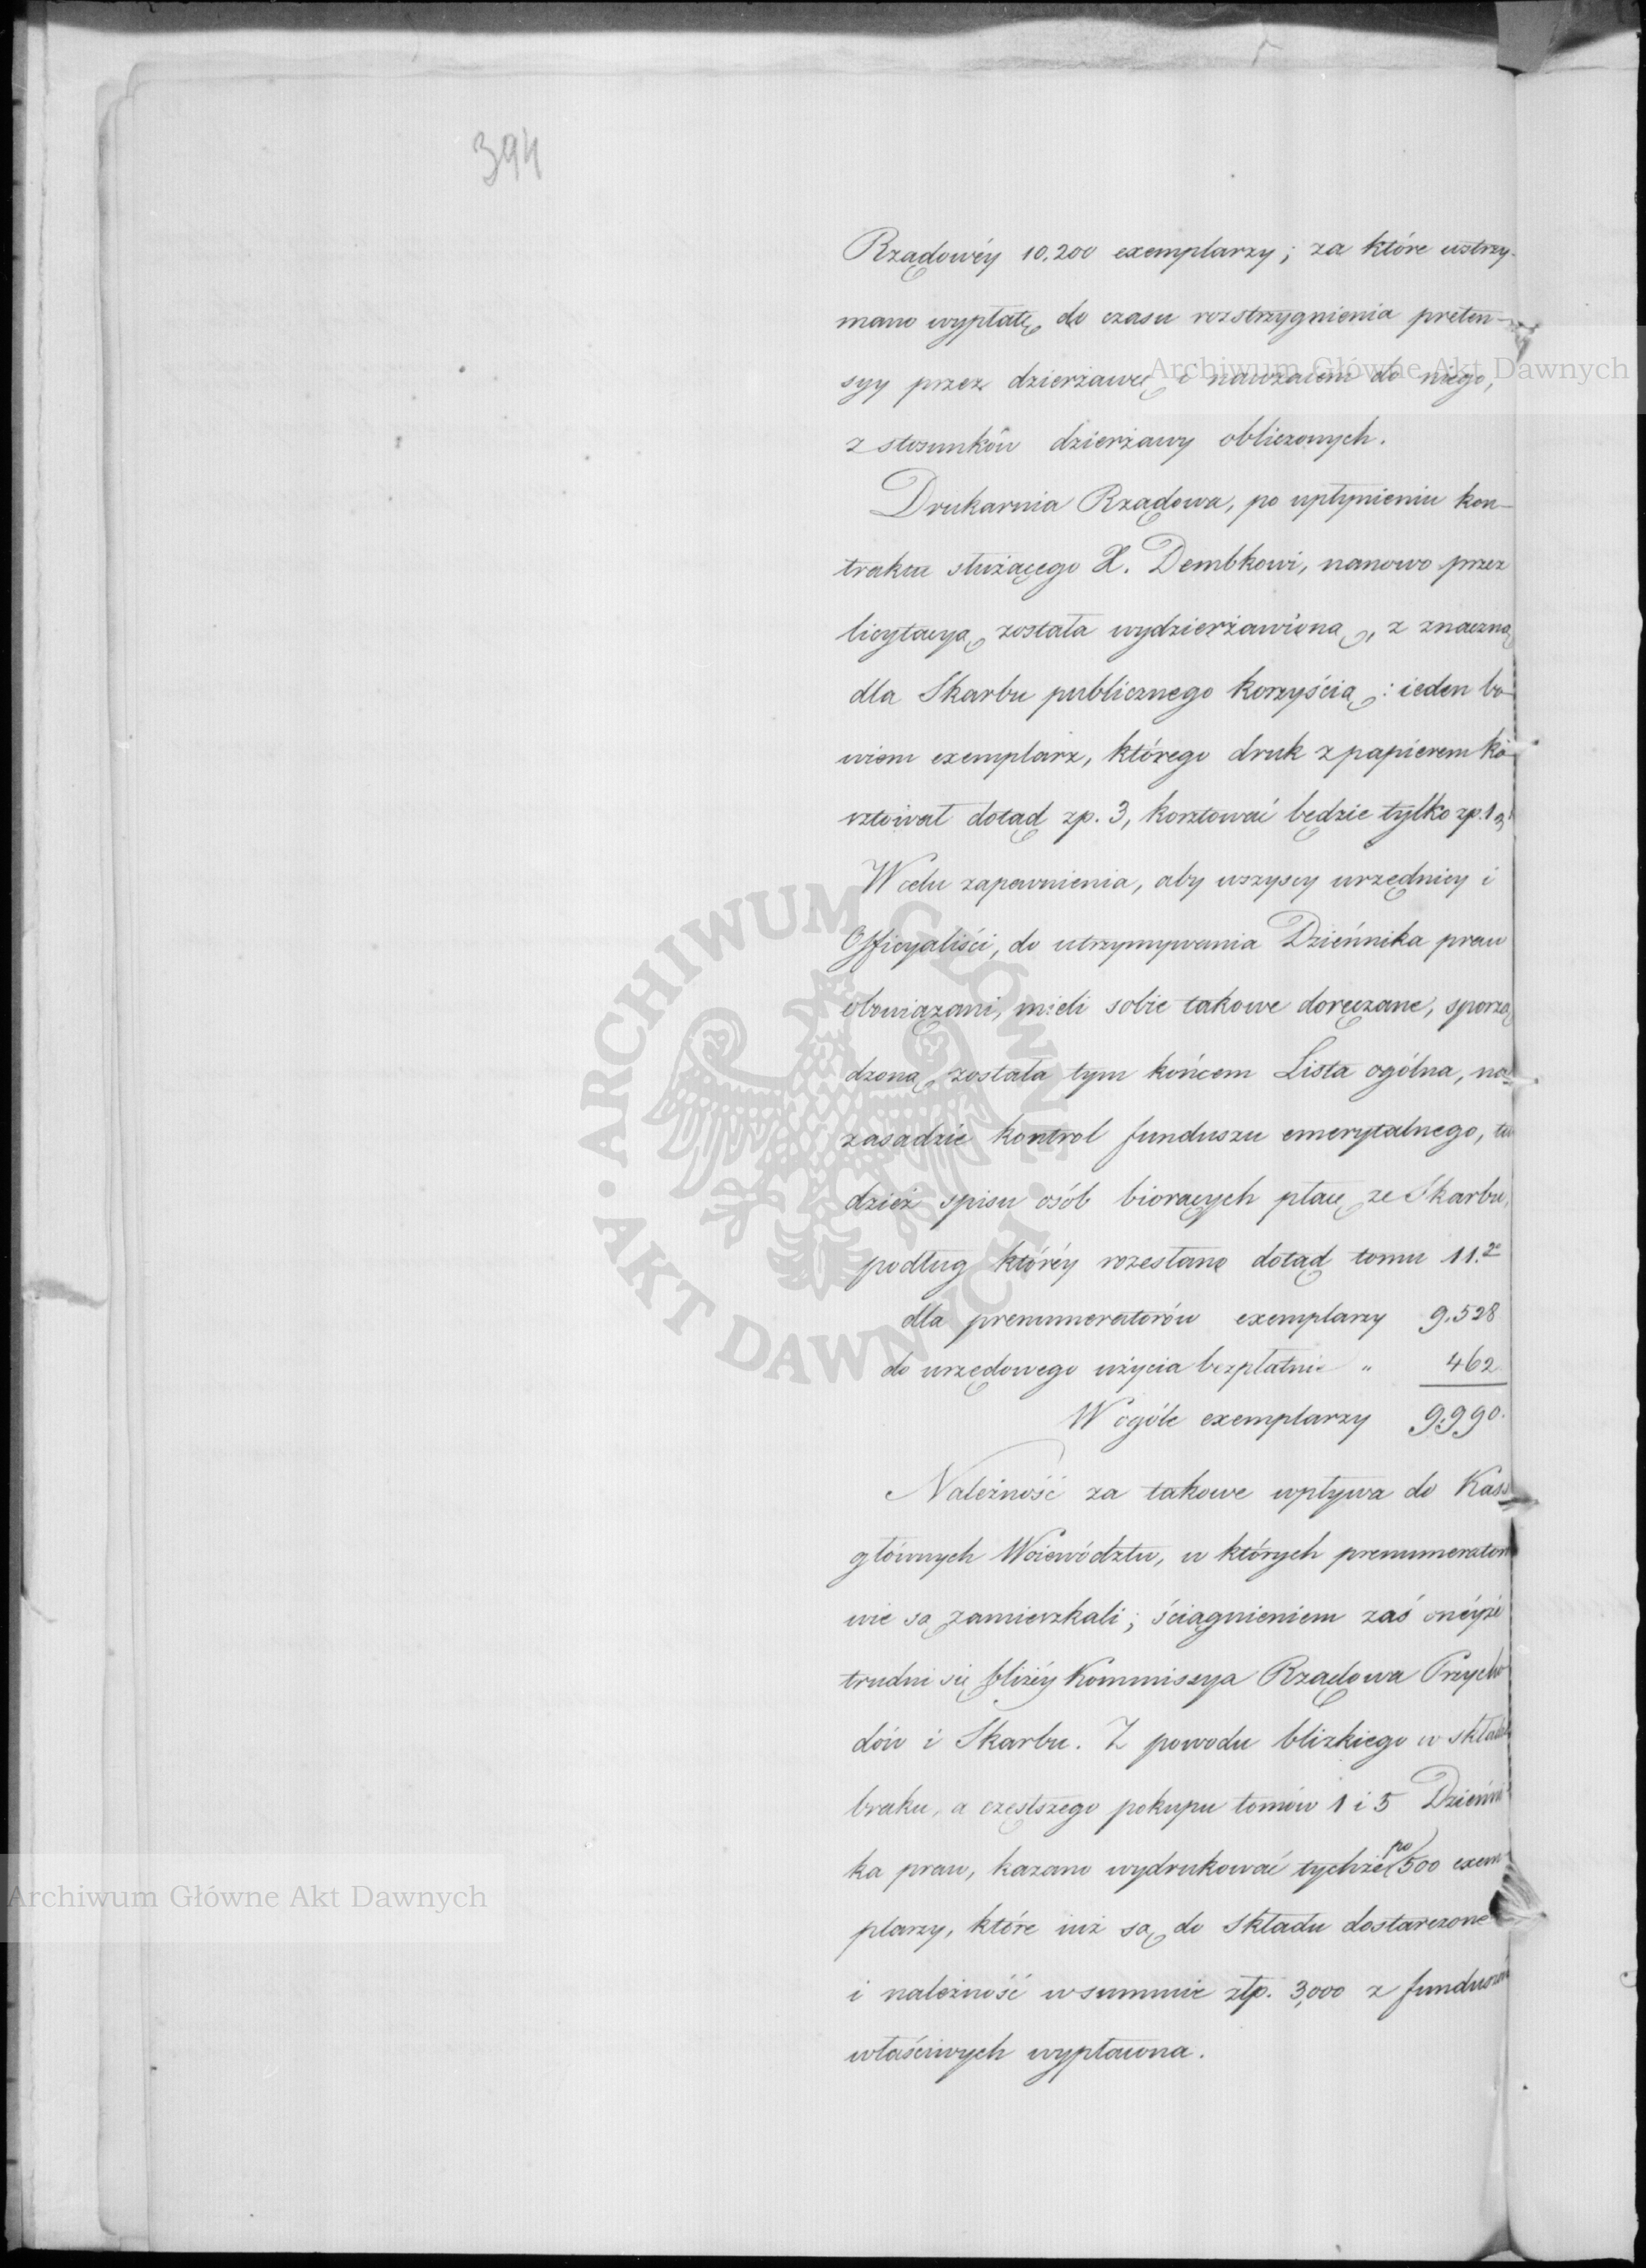 394
Rządowéy 10,200 exemplarzy; za które wstrzy-
mano wypłatę do czasu rozstrzygnienia preten-
syy przez dzierżawcę i nawzaiem do niego,
z stosunków dzierżawy obliczonych.
Drukarnia Rządowa, po upłynieniu kon-
traktu służącego X. Dembkowi, nanowo przez
licytacyą została wydzierżawioną, z znaczną
dla Skarbu publicznego korzyścią: ieden bo-
wiem exemplarz, którego druk z papierem ko-
sztował dotąd zp. 3, kosztować będzie tylko zp. 1
W celu zapewnienia, aby wszyscy urzędnicy i
Officyaliści, do utrzymywania Dzieńnika praw
obowiązani, mieli sobie takowe doręczane, sporzą
dzoną została tym końcem Lista ogólna, na
zasadzie kontrol funduszu emerytalnego, tu
dzież spisu osób biorących płacę ze Skarbu,
podług któréy rozesłano dotąd tomu 11.go
dla prenumeratorów exemplarzy 9,528
do urzędowego użycia bezpłatnie " 462
W ogóle exemplarzy 9,990.
Należność za takowe wpływa do Kass
głównych Woiewództw, w których prenumerator
wie są zamieszkali; ściągnieniem zaś onéyże
trudni się bliżéy Kommissya Rządowa Przycho
dów i Skarbu. Z powodu blizkiego w składzie
braku, a częstszego pokupu tomów 1 i 5 Dzieńni
ka praw, kazano wydrukować tychże po 500 exem
plarzy, które iuż są do Składu dostarczone
i należność w summie złp. 3,000 z funduszów
właściwych wypłacona.
Archiwum Główne Akt Dawnych
Archiwum Główne Akt Dawnych
ARCHIWUM GŁÓWNE AKT DAWNYCH